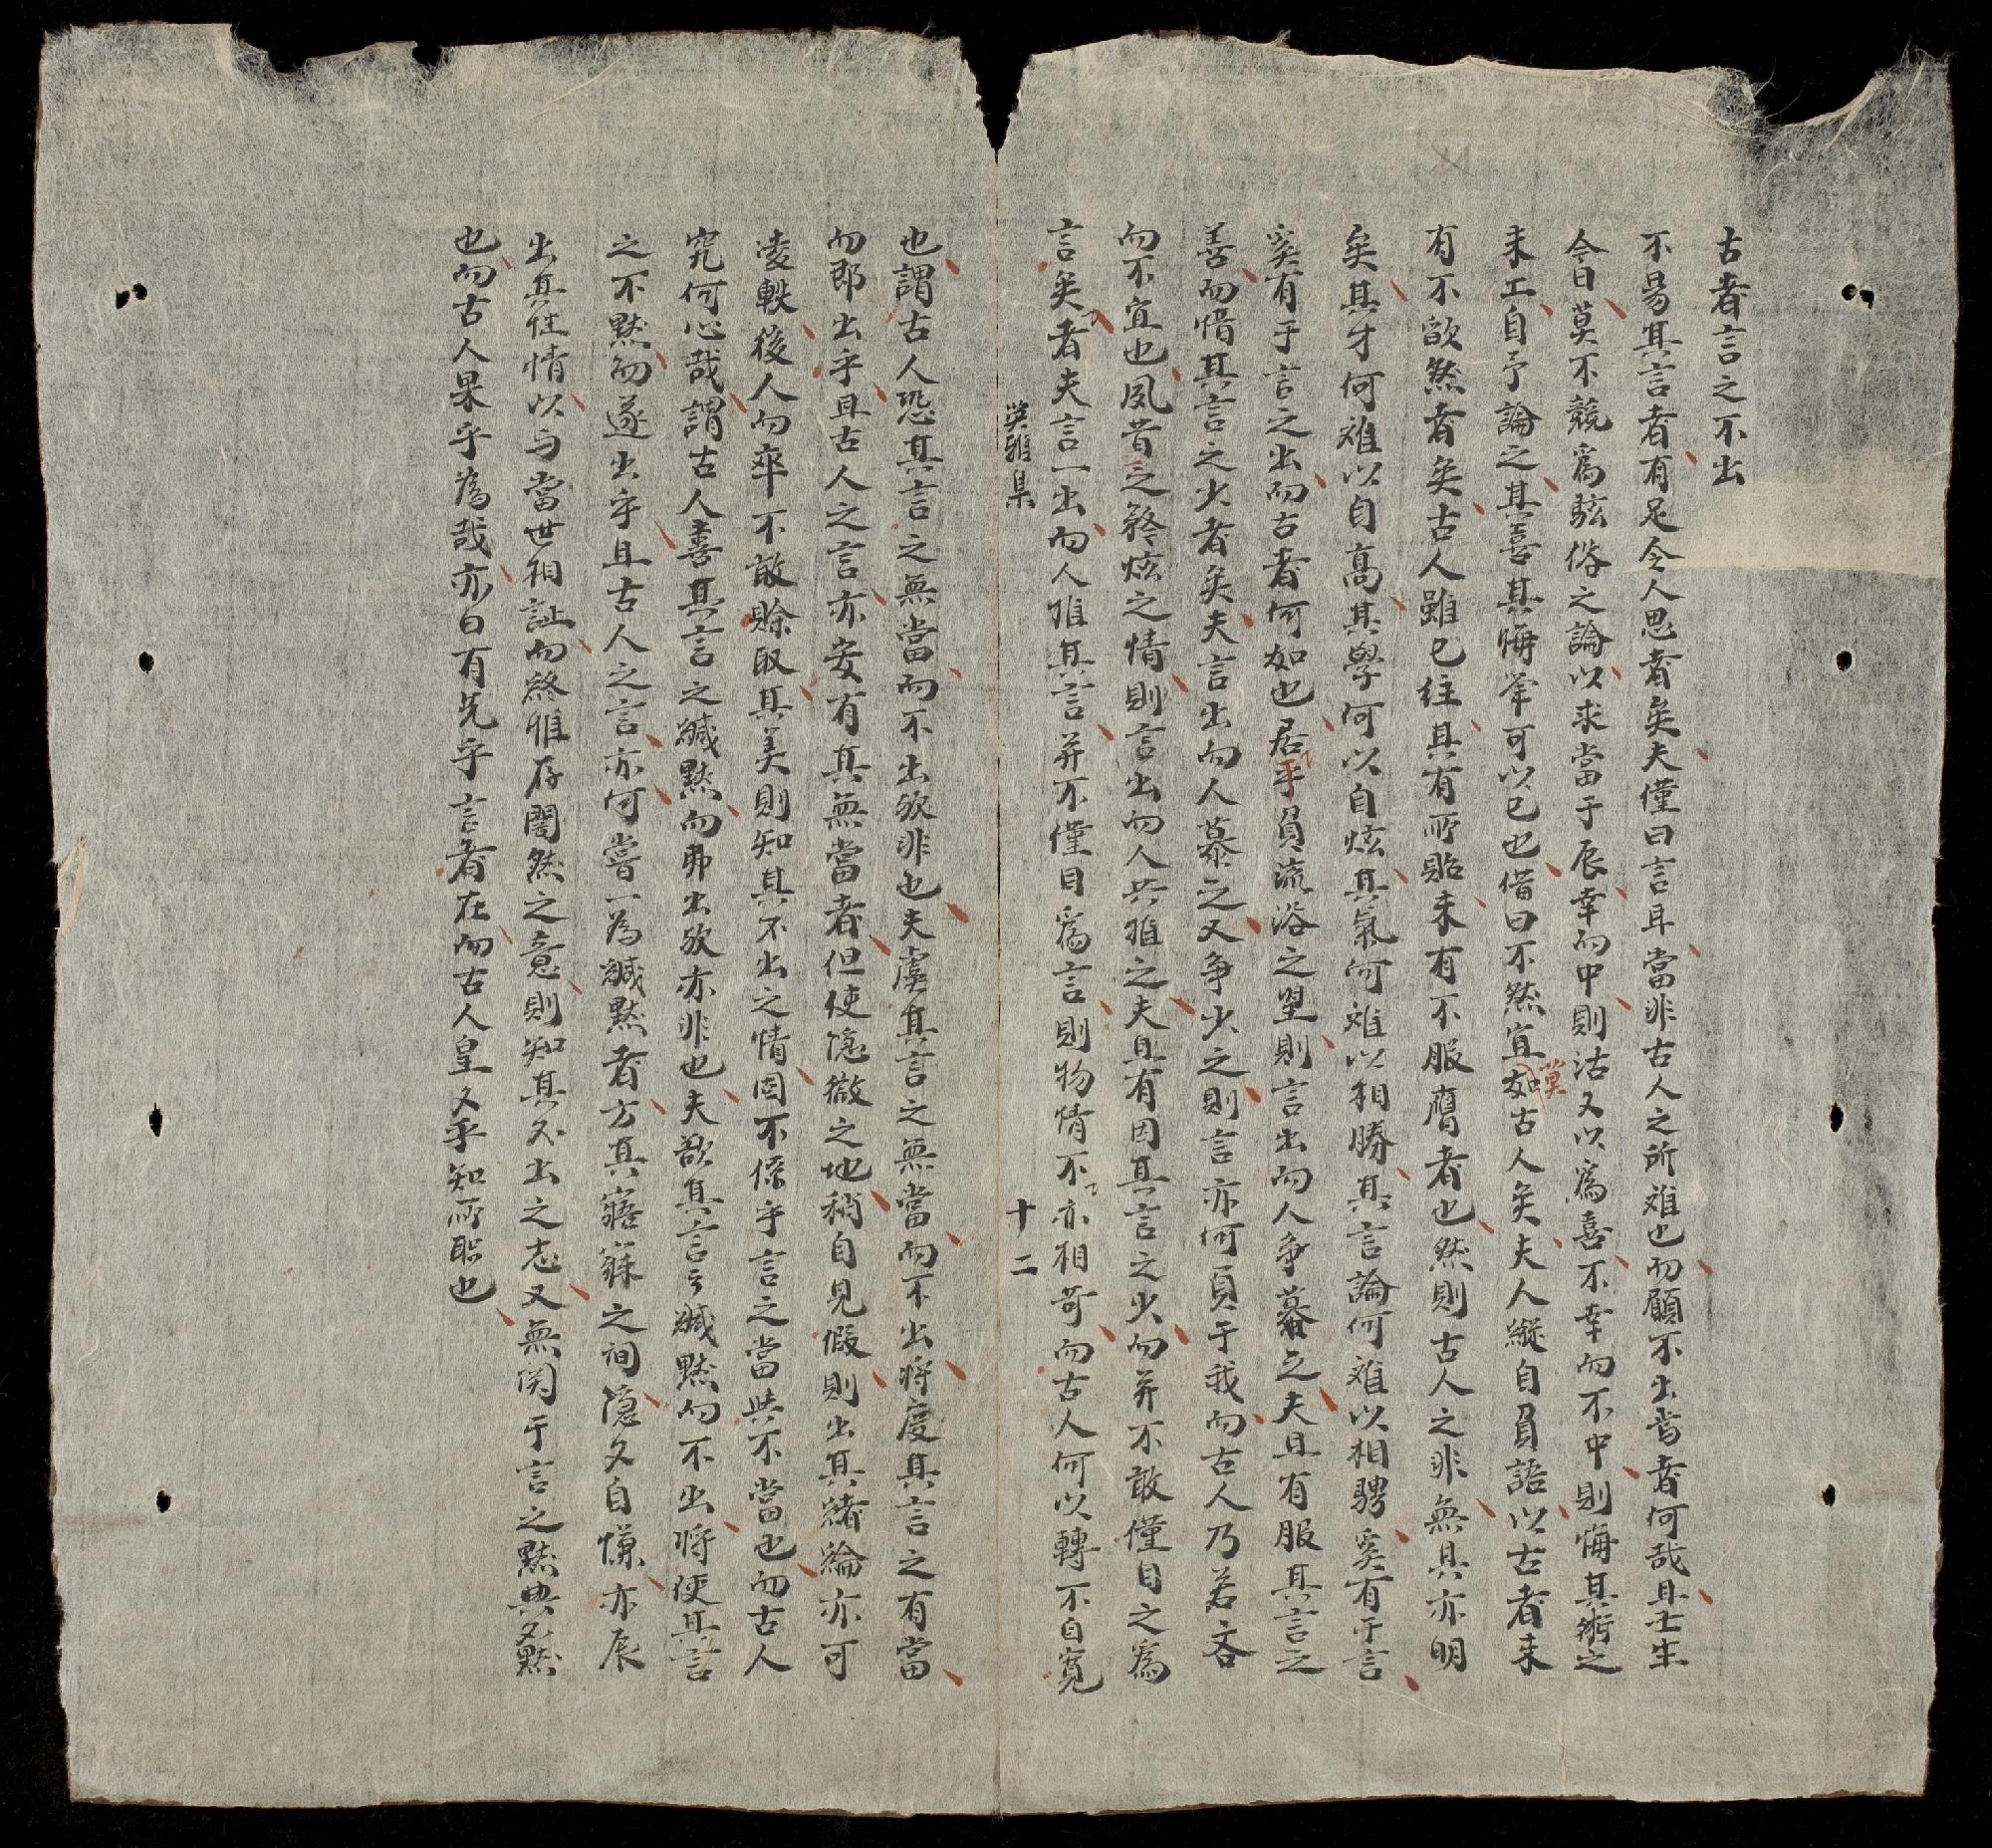 古者言之不出
不易其言者有足令人思者矣夫僅曰言耳當非古人之所难也而顧不出焉者何哉且士生
今日莫不競爲駭俗之論以求當于辰幸而中則沾又以爲喜不幸而不中則悔其術之
未工自予論之其喜其悔举可以已也借曰不然宜莫如古人矣夫人縱自負語以古者未
有不欿然者矣古人雖已往其有所貽未有不服膺者也然則古人之非無具亦明
矣其才何难以自高其學何以自炫其氣何难以相勝其言論何难以相騁奚有于言
奚有于言之出而古者何如也居乎負流俗之望則言出而人争慕之夫且有服其言之
善而惜其言之少者矣夫言出而人慕之又争少之則言亦何負于我而古人乃若吝
而不宜也夙昔之矜炫之情則言出而人共推之夫且有因其言之少而并不敢僅目之爲
言矣者夫言一出而人推其言并不僅目爲言則物情不亦相苛而古人何以轉不自寬
英雅集
十二
也謂古人恐其言之無當而不出欤非也夫虞其言之無當而不出將度其言之有當
而即出乎且古人之言亦安有其無當者但使隐微之地稍自見假則出其緒綸亦可
凌軼後人而卒不敢賒取其美則知其不出之情固不係乎言之當與不當也而古人
究何心哉謂古人喜其言之緘默而弗出欤亦非也夫欲其言之緘默而不出將使其言
之不默而遂出乎且古人之言亦何嘗一為緘默者方其寤寐之间隐又自慊亦辰
出其性情以与當世相証而終雅存闇然之意則知其不出之志又無関于言之默與不默
也而古人果乎為哉亦曰有先乎言者在而古人皇又乎知所耻也